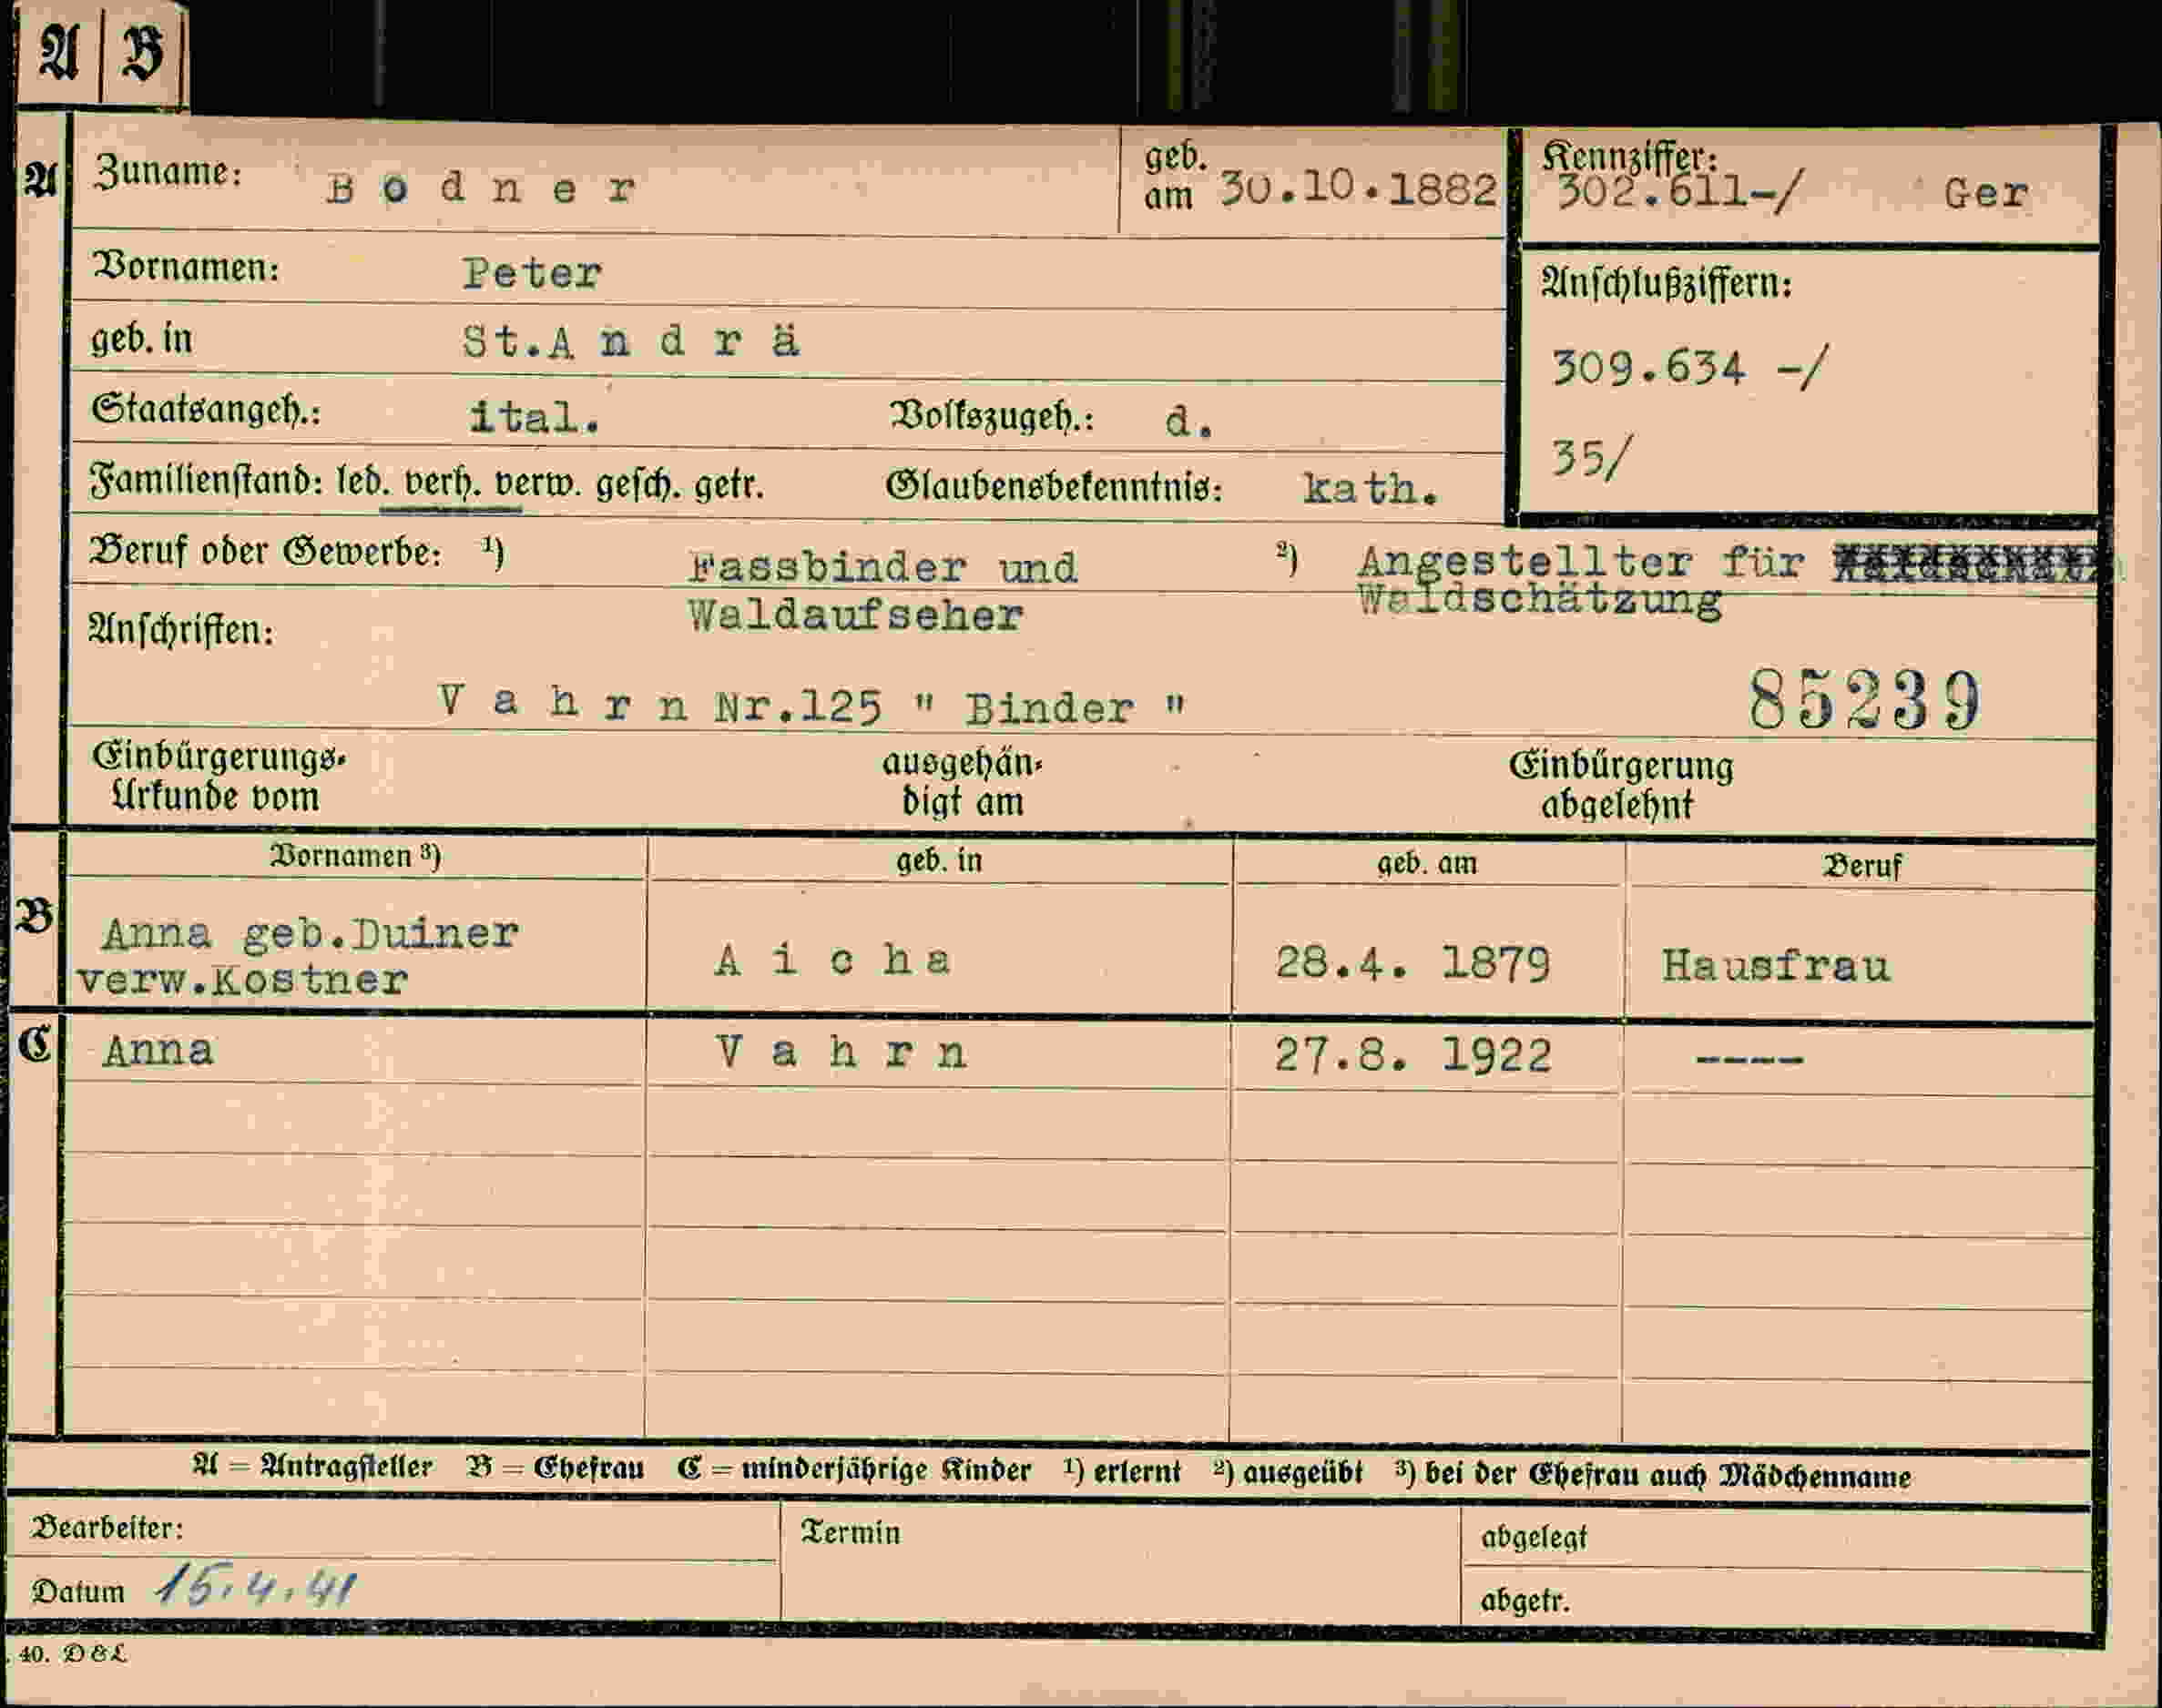 A B
A Zuname: Bodner geb. am 30.10.1882 Kennziffer: 302.611-/ Ger
Vornamen: Peter
Anschlußziffern:
geb. in St.Andrä
309.634 -/
Staatsangeh.: ital. Volkszugeh.: d.
35/
Familienstand: led. verh. verw. gesch. getr. Glaubensbekenntnis: kath.
Beruf oder Gewerbe: 1) Fassbinder und 2) Angestellter für
Waldaufseher Waldschätzung
Anschriften:
Vahrn Nr.125 " Binder " 85239
Einbürgerungs- ausgehän- Einbürgerung
Urkunde vom digt am abgelehnt
Vornamen 3) geb. in geb. am Beruf
B Anna geb.Duiner
verw.Kostner Aicha 28.4. 1879 Hausfrau
C Anna Vahrn 27.8. 1922 ----
A = Antragsteller B = Ehefrau C = minderjährige Kinder 1) erlernt 2) ausgeübt 3) bei der Ehefrau auch Mädchenname
Bearbeiter: Termin abgelegt
Datum 15.4.41 abgetr.
. 40. D & L